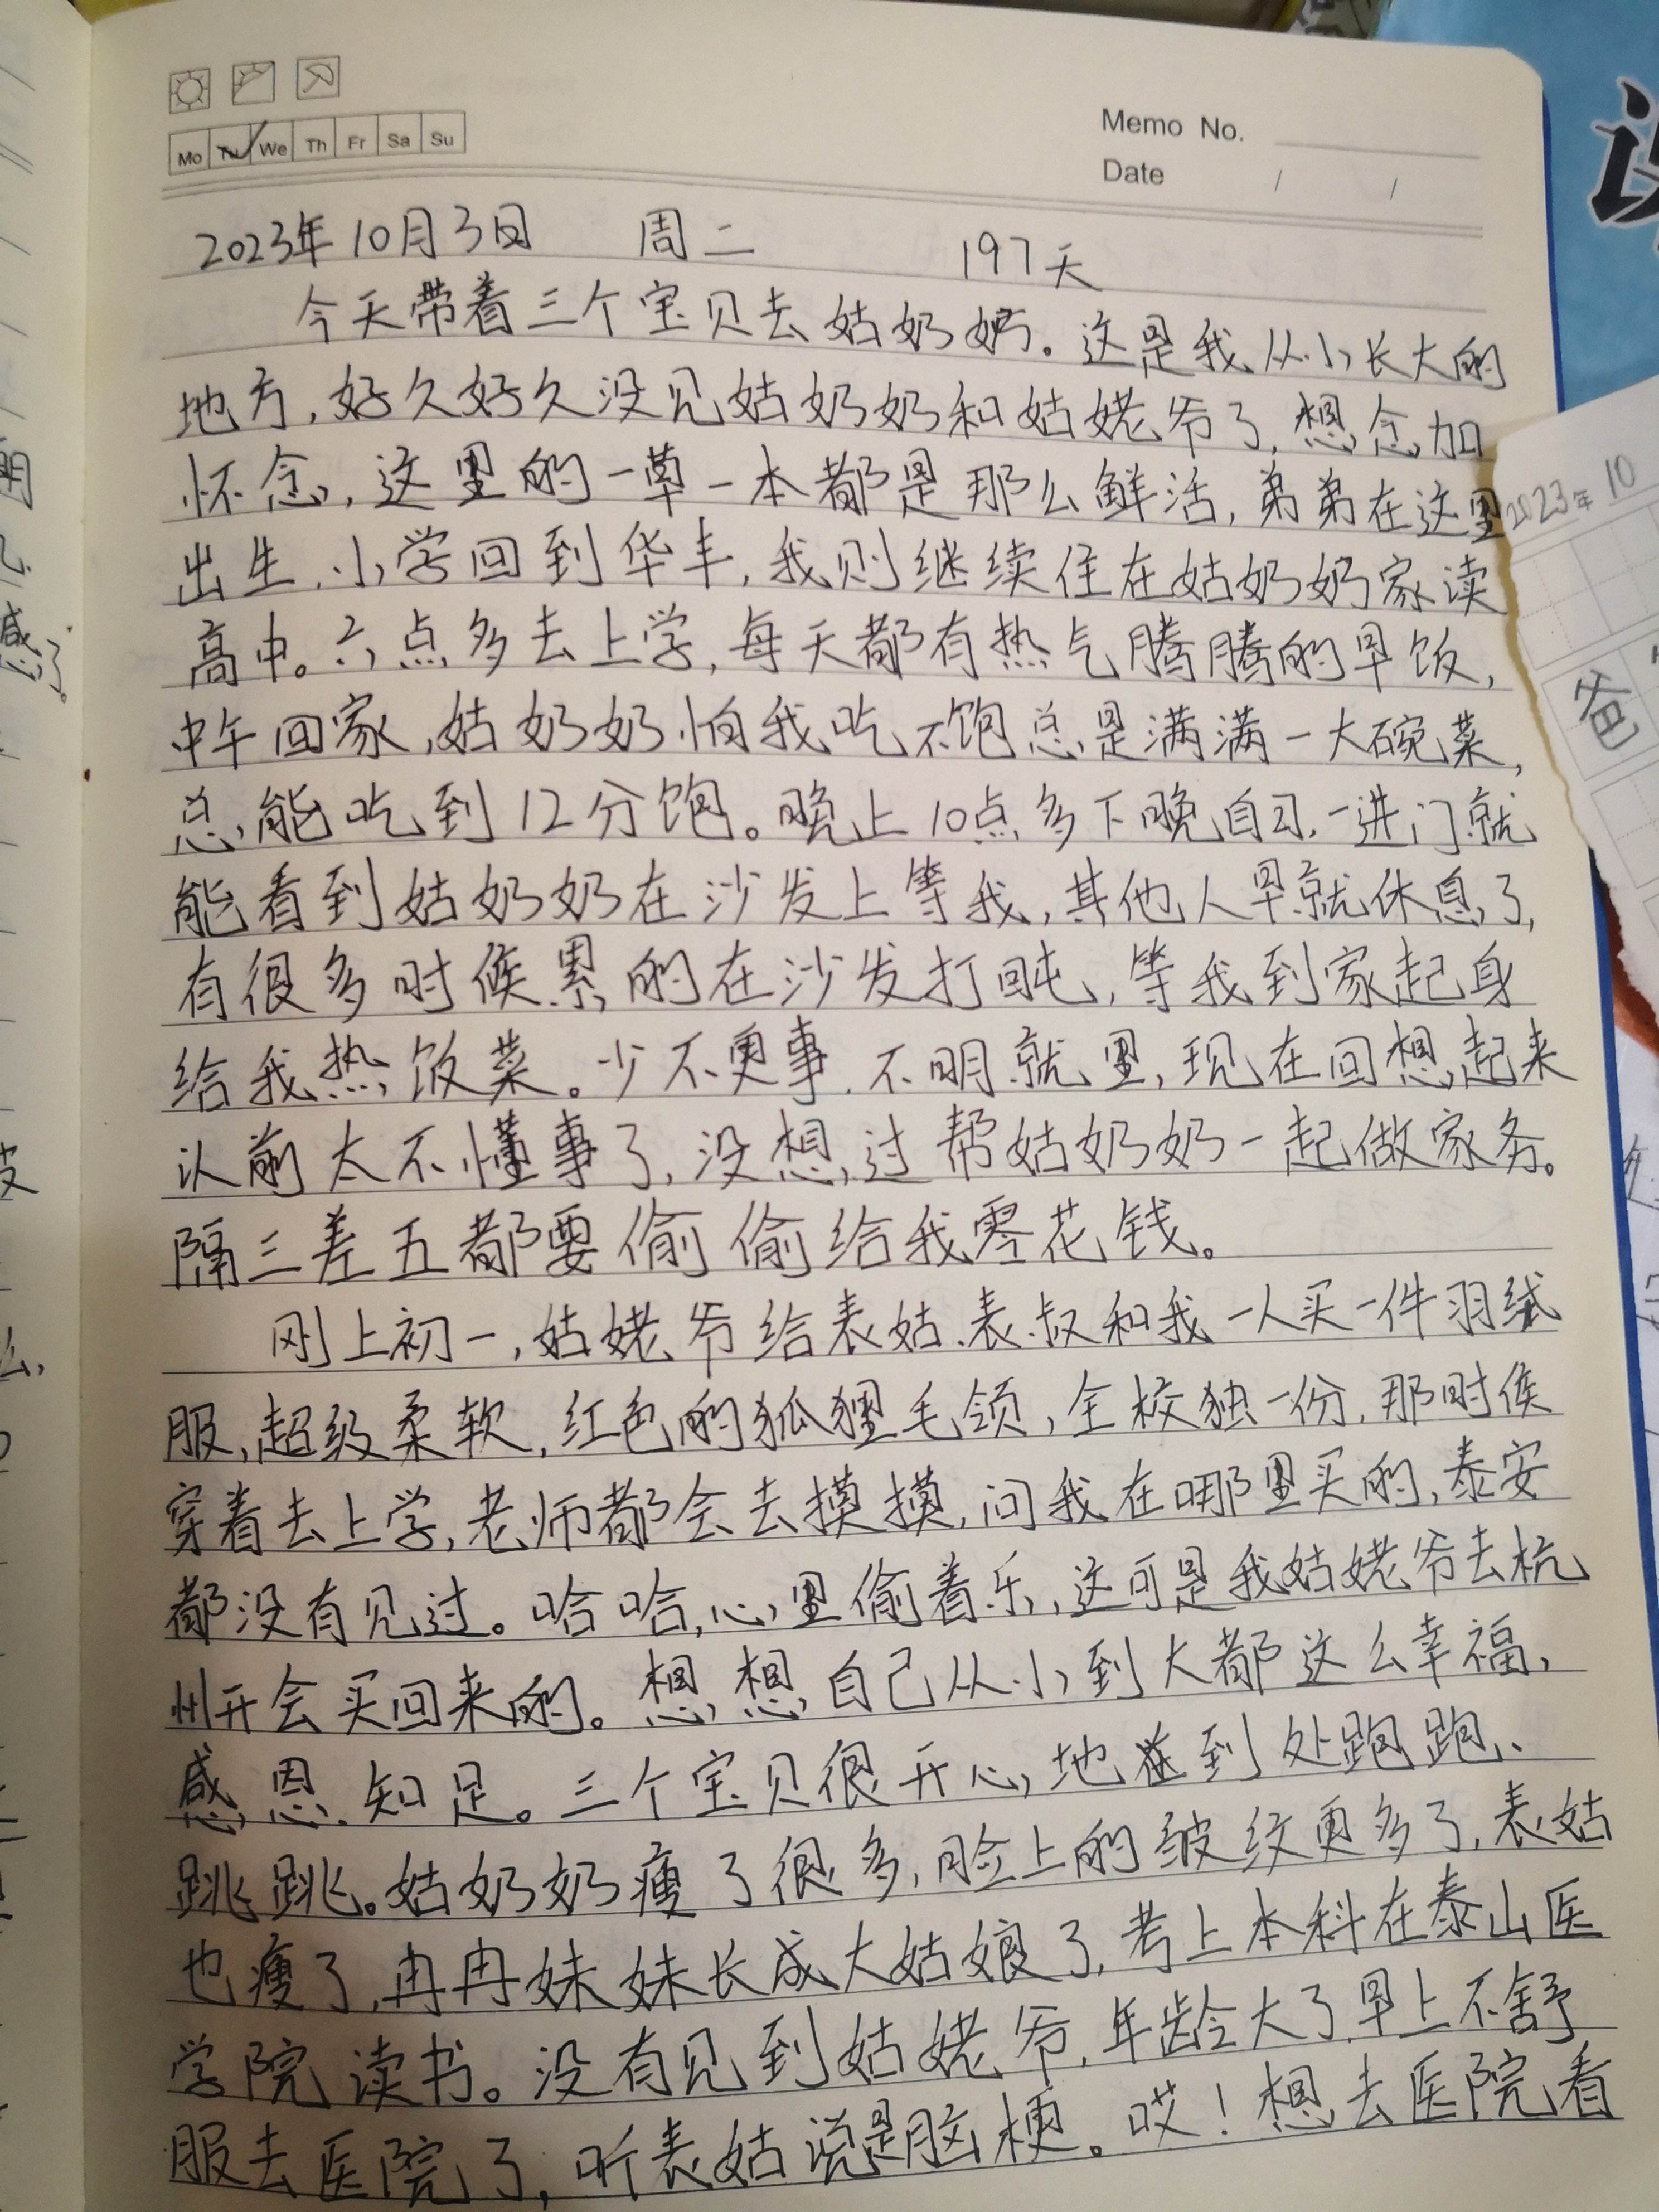 Mo Tu We Th Fr Sa Su
Memo No.
Date / /
2023年10月3日 周二 197天
今天带着三个宝贝去姑奶奶。这是我从小长大的
地方,好久好久没见姑奶奶和姑姥爷了,想念加
怀念,这里的一草一本都是那么鲜活,弟弟在这里
出生,小学回到华丰,我则继续住在姑奶奶家读
高中。六点多去上学,每天都有热气腾腾的早饭,
中午回家,姑奶奶怕我吃不饱总是满满一大碗菜,
总能吃到12分饱。晚上10点多下晚自习,一进门就
能看到姑奶奶在沙发上等我,其他人早就休息了,
有很多时候累的在沙发打盹,等我到家起身
给我热饭菜。少不更事,不明就里,现在回想起来
以前太不懂事了,没想过帮姑奶奶一起做家务。
隔三差五都要偷偷给我零花钱。
刚上初一,姑姥爷给表姑、表叔和我一人买一件羽绒
服,超级柔软,红色的狐狸毛领,全校独一份,那时候
穿着去上学,老师都会去摸摸,问我在哪里买的,泰安
都没有见过。哈哈,心里偷着乐,这可是我姑姥爷去杭
州开会买回来的。想想自己从小到大都这么幸福,
感恩、知足。三个宝贝很开心,地到处跑跑、
跳跳。姑奶奶瘦了很多,脸上的皱纹更多了,表姑
也瘦了,冉冉妹妹长成大姑娘了,考上本科在泰山医
学院读书。没有见到姑姥爷,年龄大了早上不舒
服去医院了,听表姑说是脑梗。哎!想去医院看
2023年10
爸